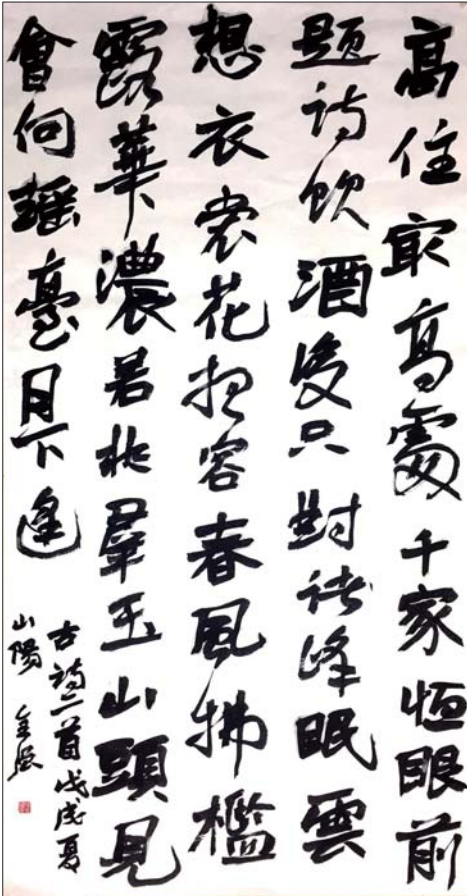 高住最高處千家恒眼前
題詩飲酒後只對諸峰眠雲
想衣裳花想容春風拂檻
露華濃若非羣玉山頭見
會向瑤臺月下逢
古詩二首戊戌夏
山陽